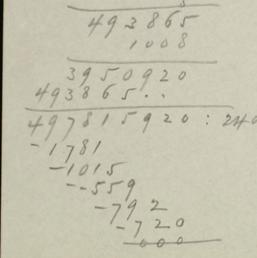 493865
1008
3950920
493865..
497815920 : 240
-1781
-1015
--559
-792
-720
000